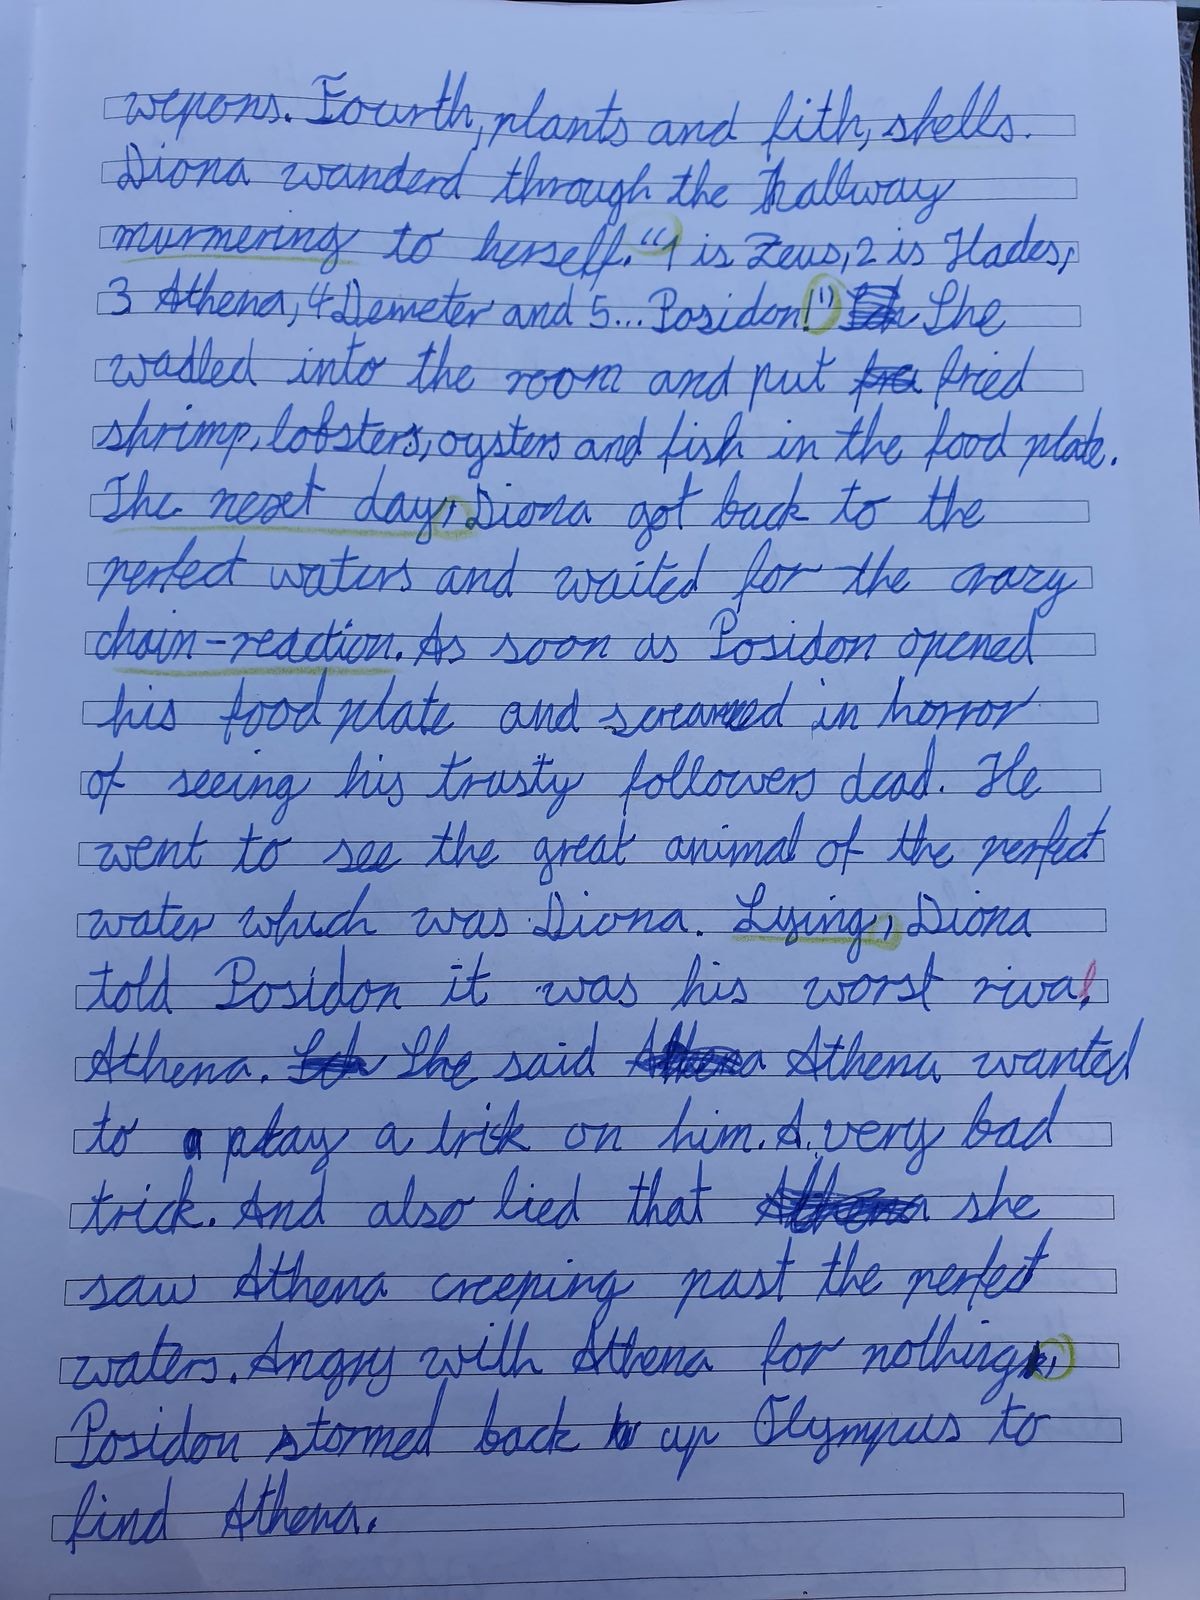 wepons. Fourth, plants and fith, shells.
Diona wanderd through the hallway
murmering to herself. "1 is Zeus, 2 is Hades,
3 Athena, 4 Demeter and 5... Posidon!" She
wadled into the room and put fried
shrimp, lobsters, oysters and fish in the food plate.
The next day, Diona got back to the
perfect waters and waited for the crazy
chain-reaction. As soon as Posidon opened
his food plate and screamed in horror
of seeing his trusty followers dead. He
went to see the great animal of the perfect
water which was Diona. Lying, Diona
told Posidon it was his worst rival,
Athena. She said Athena wanted
to play a trik on him. A very bad
trick. And also lied that she
saw Athena creeping past the perfect
waters. Angry with Athena for nothing,
Posidon stormed back up Olympus to
find Athena.